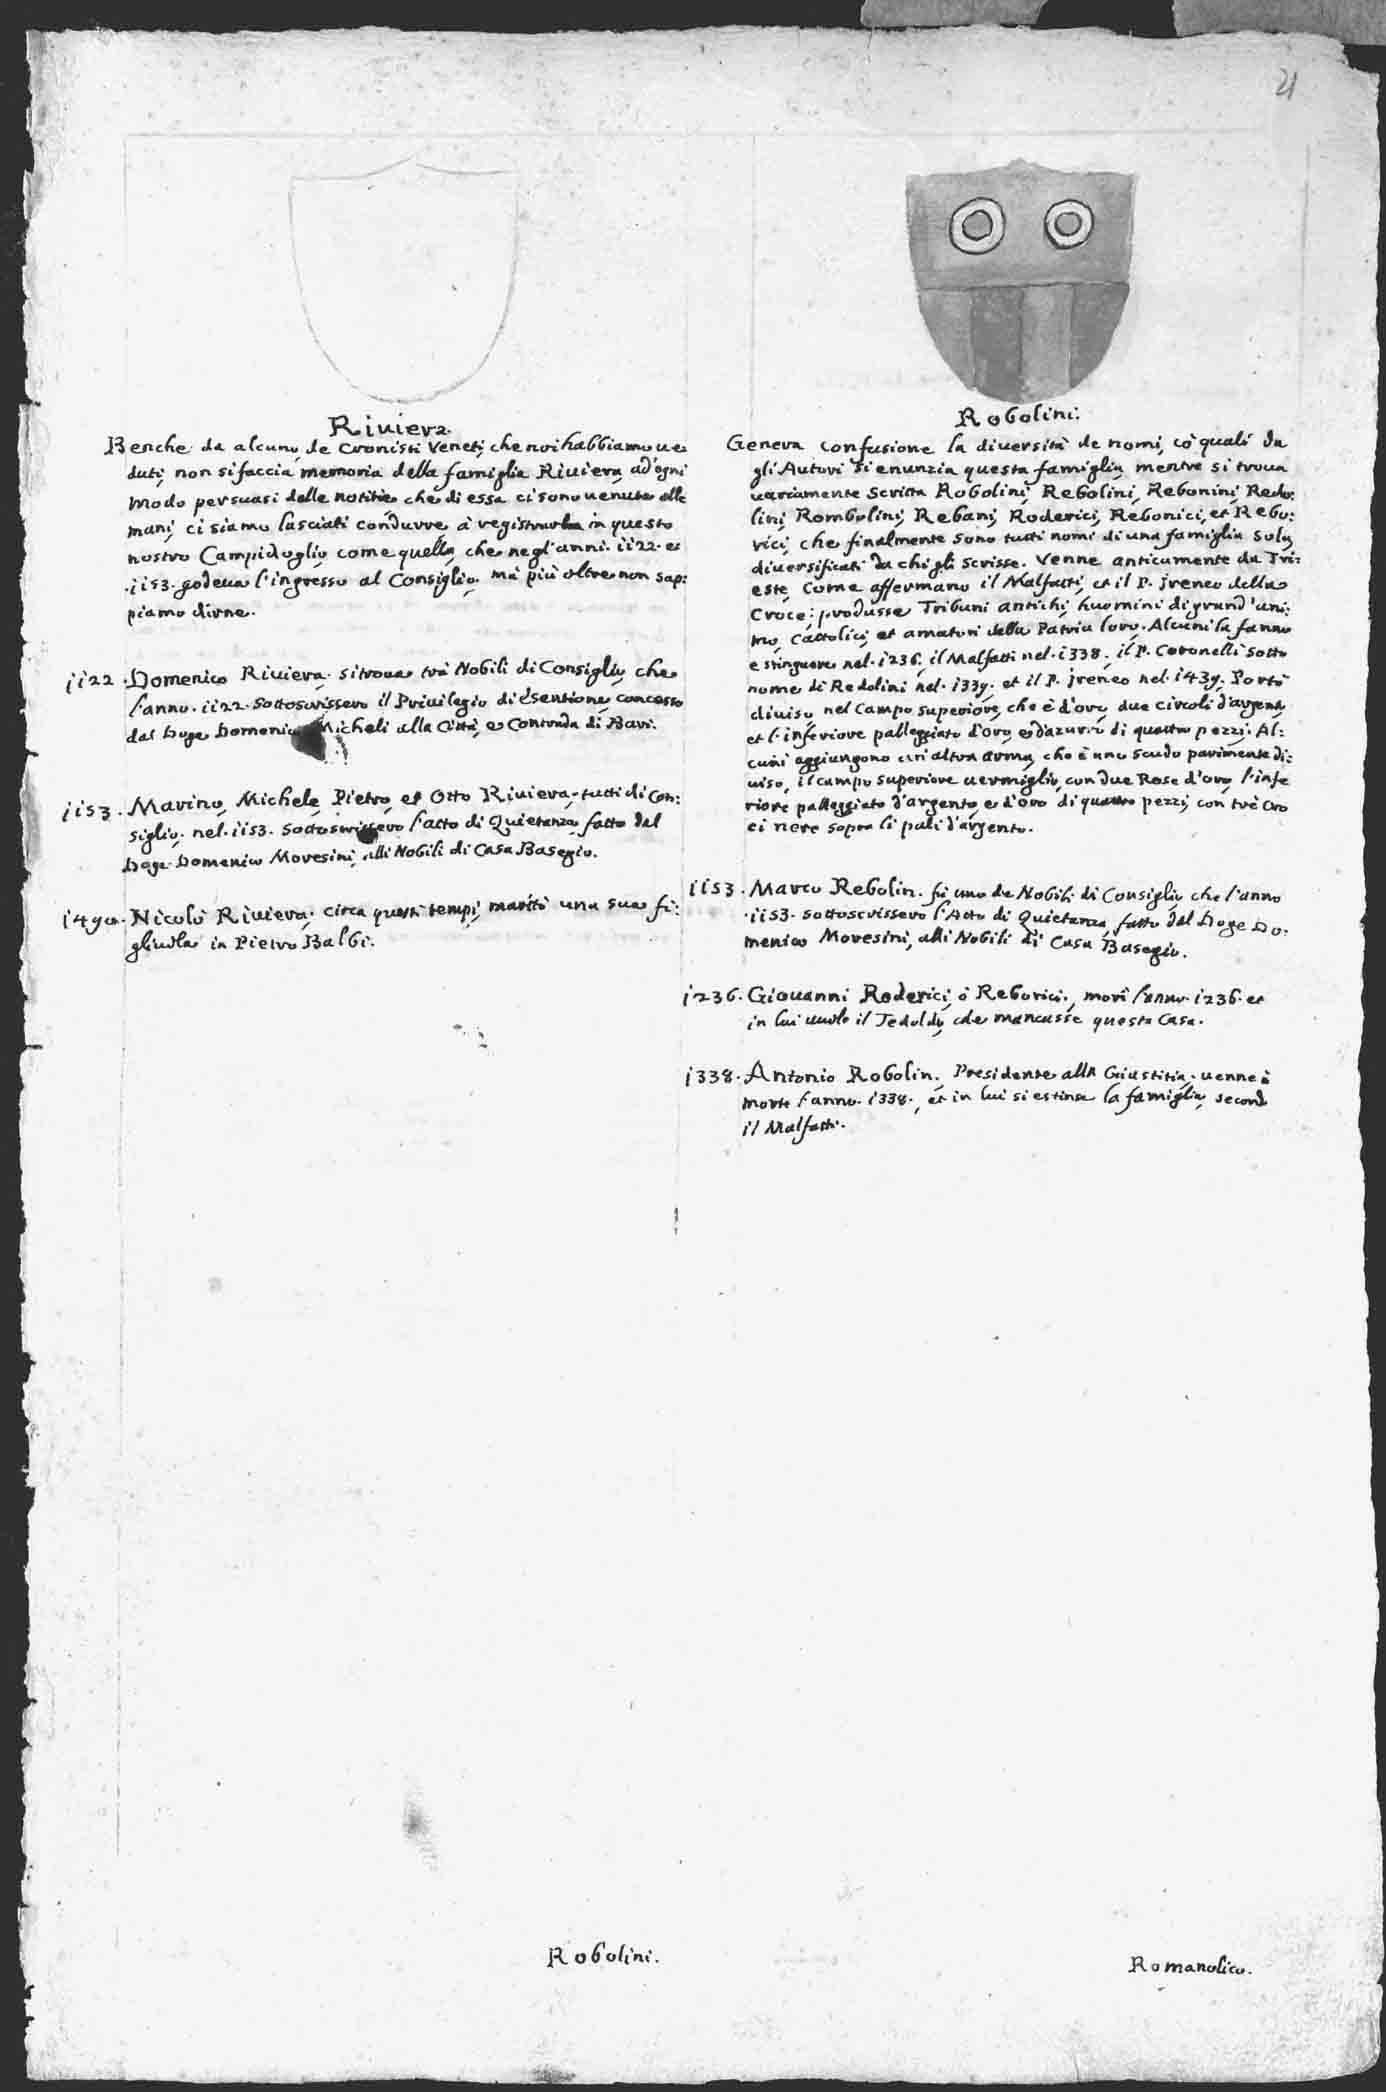 21
Riuiera.
Benche da alcuno de Cronisti Veneti, che noi habbiamo ue
duti, non si faccia memoria della famiglia Riuiera, ad'ogni
modo persuasi delle notitie, che di essa ci sono uenute alle
mani, ci siamo lasciati condurre à registrarla in questo
nostro Campidoglio, come quella, che negl'anni. 1122. et
.1153. godeua l'ingresso al Consiglio. mà più oltre non sap:
piamo dirne.
1122. Domenico Riuiera. si troua trà Nobili di Consiglio, che
l'anno. 1122. sottoscrissero il Priuilegio di esentione, concesso
dal Doge Domenico Micheli alla Città, e Contrada di Bari.
1153. Marino, Michele, Pietro, et Otto Riuiera, tutti di Con:
siglio. nel. 1153. sottoscrissero l'atto di Quietanza, fatto dal
Doge Domenico Moresini, alli Nobili di Casa Basegio.
1490. Nicolò Riuiera. circa questi tempi, maritò una sua fi:
gliuola in Pietro Balbi.
Robolini.
Robolini.
Genera confusione la diuersità de nomi, cò quali da
gli Autori si enunzia questa famiglia, mentre si troua
uariamente scritta Robolini, Rebolini, Rebonini, Redo:
lini, Rombolini, Rebani, Roderici, Rebonici, et Rebo:
rici, che finalmente sono tutti nomi di una famiglia sola,
diuersificati da chi gli scrisse. Venne anticamente da Tri:
este, come affermano il Malfatti, et il P. Jreneo della
Croce: produsse Tribuni antichi, huomini di grand'ani:
mo, Cattolici, et amatori della Patria loro. Alcuni la fanno
estinguere nel. 1236. il Malfatti nel. 1338. il P. Coronelli sotto
nome di Redolini nel. 1339. et il P. Jreneo nel. 1439. Portò
diuiso nel Campo superiore, che è d'oro, due circoli d'argento,
et l'inferiore palleggiato d'oro, e d'azurro di quattro pezzi. Al:
cuni aggiungono un'altra arma, che è uno scudo parimente di:
uiso, il campo superiore uermiglio, con due Rose d'oro, l'infe
riore palleggiato d'argento, e d'oro di quattro pezzi, con trè Cro
ci nere sopra li pali d'argento.
1153. Marco Rebolin. fù uno de Nobili di Consiglio che l'anno
.1153. sottoscrissero l'Atto di Quietanza, fatto dal Doge Do:
menico Moresini, alli Nobili di Casa Basegio.
1236. Giouanni Roderici, ò Reborici, morì l'anno. 1236. et
in lui uuole il Tedoldo, che mancasse questa Casa.
1338. Antonio Robolin. Presidente alla Giustitia. uenne à
morte l'anno. 1338., et in lui si estinse la famiglia, secondo
il Malfatti.
Romanolico.